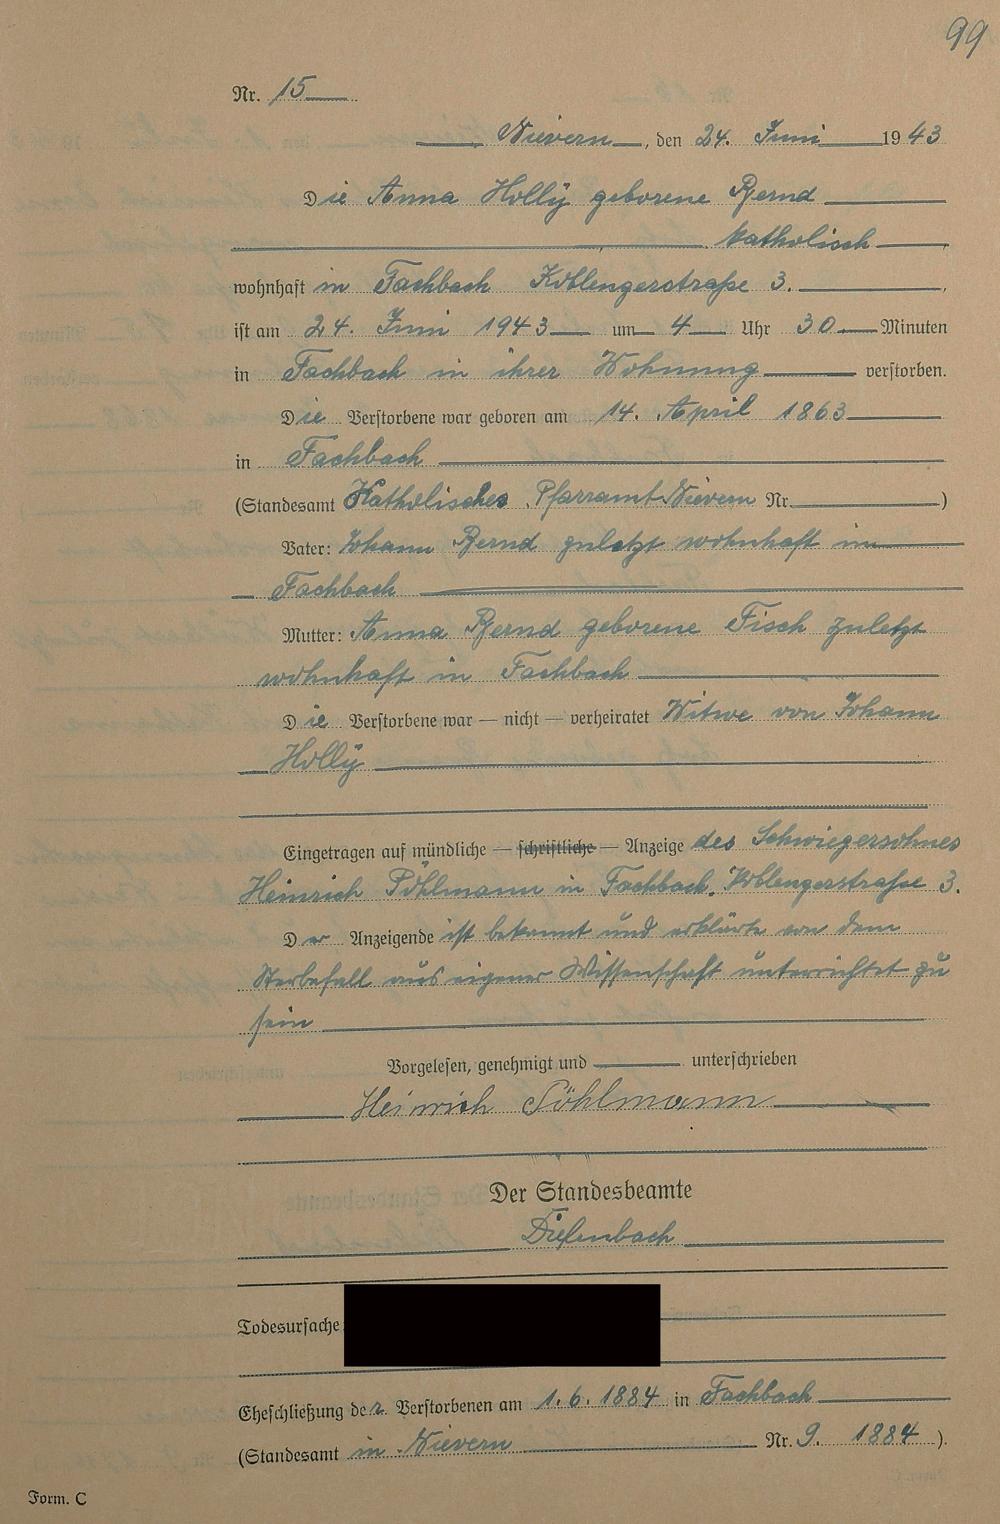 99
Nr. 15
Nievern, den 24. Juni 1943
Die Anna Holly geborene Bernd
katholisch
wohnhaft in Fachbach Koblenzerstraße 3.
ist am 24. Juni 1943 um 4 Uhr 30 Minuten
in Fachbach in ihrer Wohnung verstorben.
Die Verstorbene war geboren am 14. April 1863
in Fachbach
(Standesamt Katholisches Pfarramt Nievern Nr. )
Vater: Johann Bernd zuletzt wohnhaft in
Fachbach
Mutter: Anna Bernd geborene Fisch zuletzt
wohnhaft in Fachbach
Die Verstorbene war — nicht — verheiratet Witwe von Johann
Holly
Eingetragen auf mündliche — schriftliche — Anzeige des Schwiegersohnes
Heinrich Pöhlmann in Fachbach, Koblenzerstraße 3.
Der Anzeigende ist bekannt und erklärte von dem
Sterbefall aus eigener Wissenschaft unterrichtet zu
sein
Vorgelesen, genehmigt und unterschrieben
Heinrich Pöhlmann
Der Standesbeamte
Diefenbach
Todesursache:
Eheschließung der Verstorbenen am 1.6.1884 in Fachbach
(Standesamt in Nievern Nr. 9. 1884 ).
Form. C